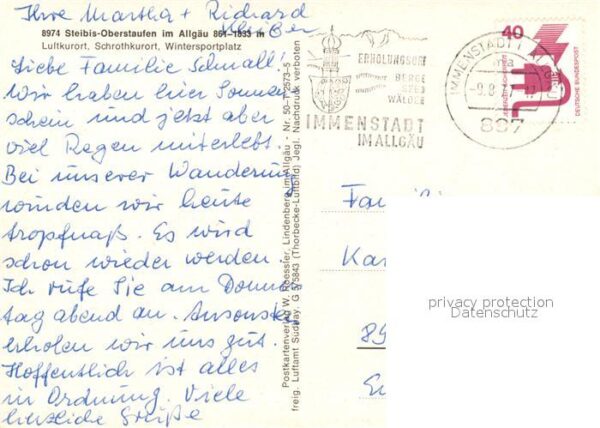 Ihre Martha + Richard
8974 Steibis-Oberstaufen im Allgäu 861–1833 m
Luftkurort, Schrothkurort, Wintersportplatz
Liebe Familie Schmall!
Wir haben hier Sonnen
schein und jetzt aber
viel Regen miterlebt.
Bei unserer Wanderung
wurden wir heute
tropfnaß. Es wird
schon wieder werden.
Ich rufe Sie am Donners
tag abend an. Ansonsten
erholen wir uns gut.
Hoffentlich ist alles
in Ordnung. Viele
herzliche Grüße
Postkartenverlag W. Roessler, Lindenberg im Allgäu - Nr. 50-T 2573-5
freig. Luftamt Südbay. G 5/5843 (Thorbecke-Luftbild) Jegl. Nachdruck verboten
ERHOLUNGSORT
BERGE
SEEN
WÄLDER
IMMENSTADT
IM ALLGÄU
IMMENSTADT
897
40
DEUTSCHE BUNDESPOST
Famili
Kar
89
privacy protection
Datenschutz